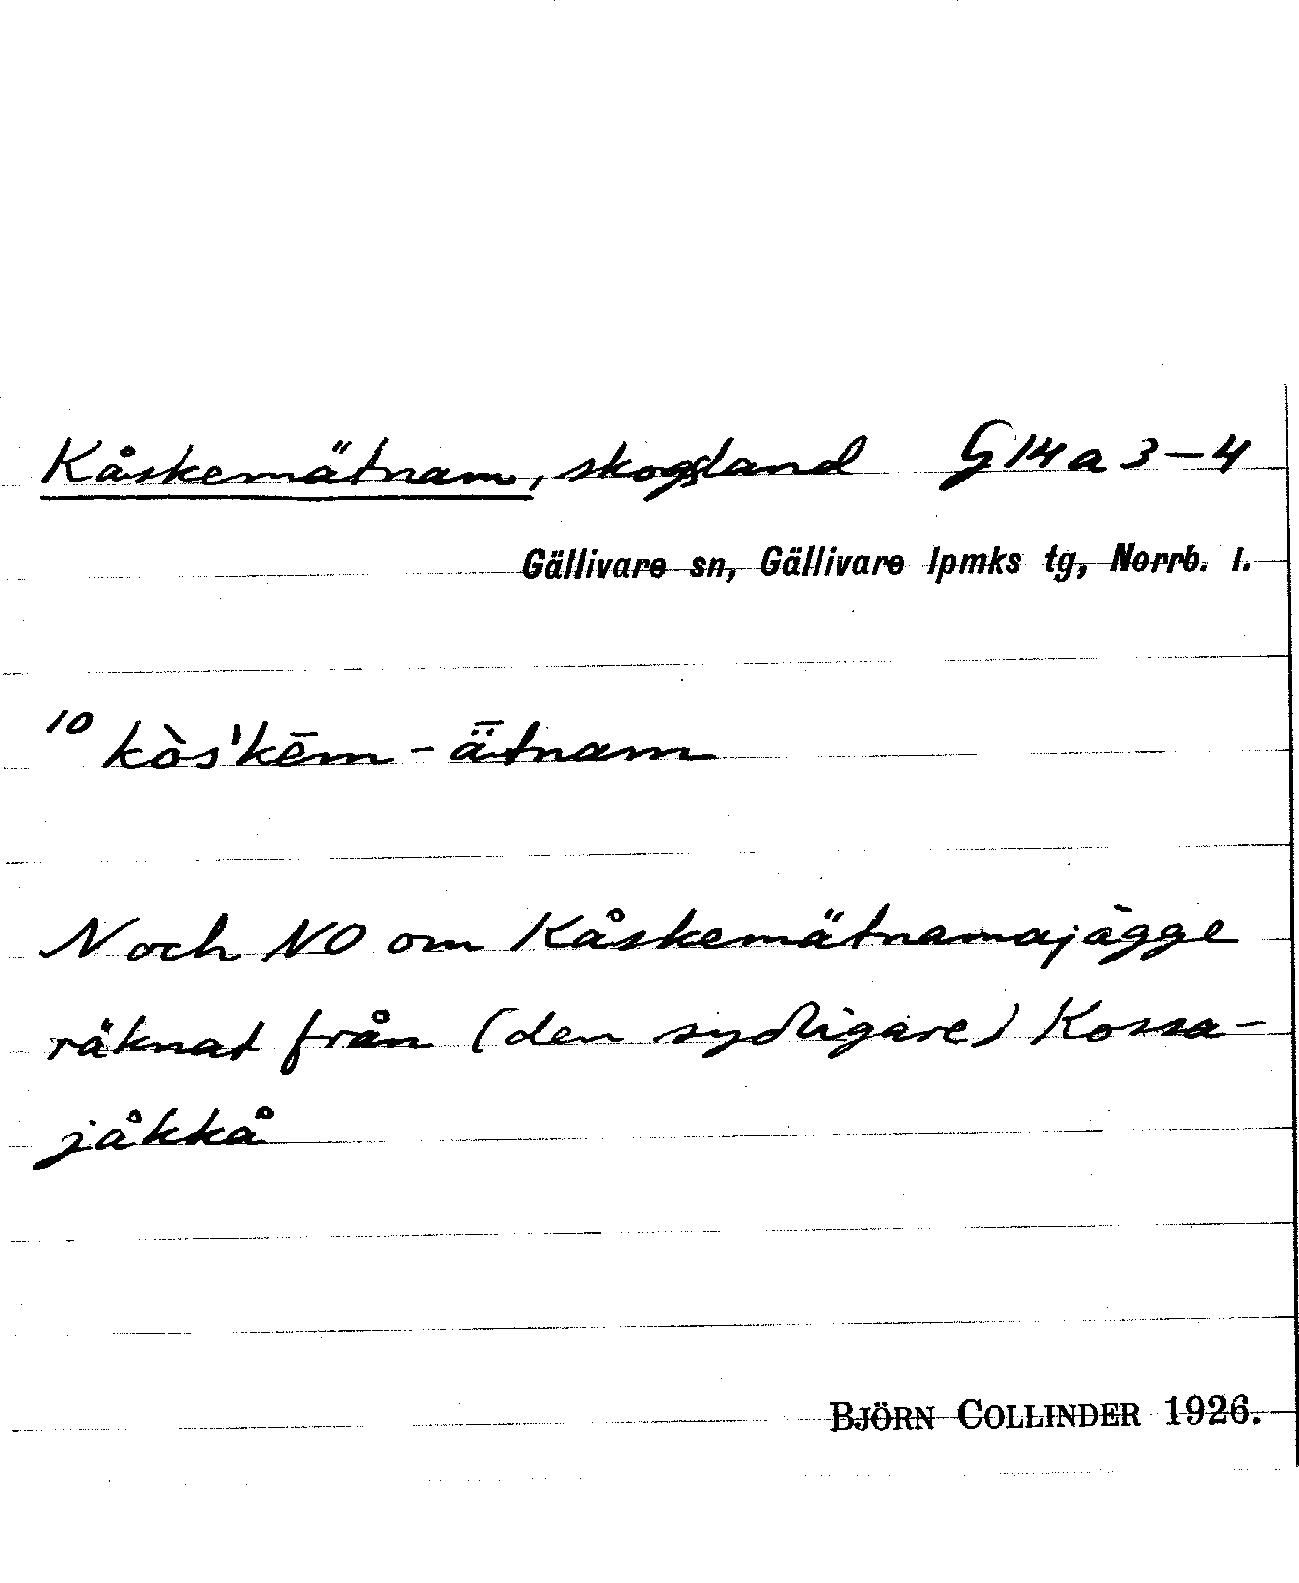 Kåskemätnam, skogsland G 14 a 3-4
Gällivare sn, Gällivare lpmks tg, Norrb. l.
10 kòs'kēm-ǟtnam
N och NO om Kåskemätnamajägge
räknat från (den sydligare) Kossa-
jåkkå
BJÖRN COLLINDER 1926.